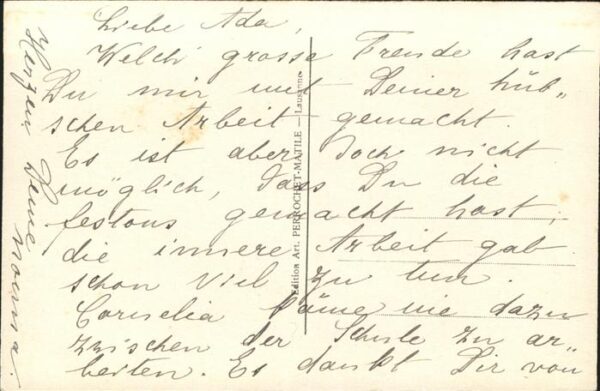 Liebe Ada,
Welch' grosse Freude hast
Du mir mit Deiner hüb„
schen Arbeit gemacht.
Es ist aber doch nicht
möglich, dass Du die
festons gemacht hast,
die innere Arbeit gab
schon viel zu tun.
Cornelia käme nie dazu
zwischen der Schule zu ar„
beiten. Es dankt Dir von
Herzen Deine
Edition Art. PERROCHET-MATILE — Lausanne